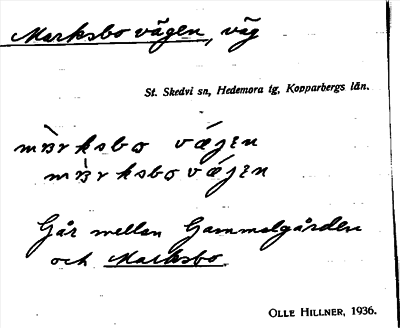 Marksbo vägen, väg
St. Skedvi sn, Hedemora tg, Kopparbergs län.
mʙ̀rksbo vǽjɛn
mʙ̀rksbovǽjɛn
Går mellan Gammelgården
och Marksbo
OLLE HILLNER, 1936.